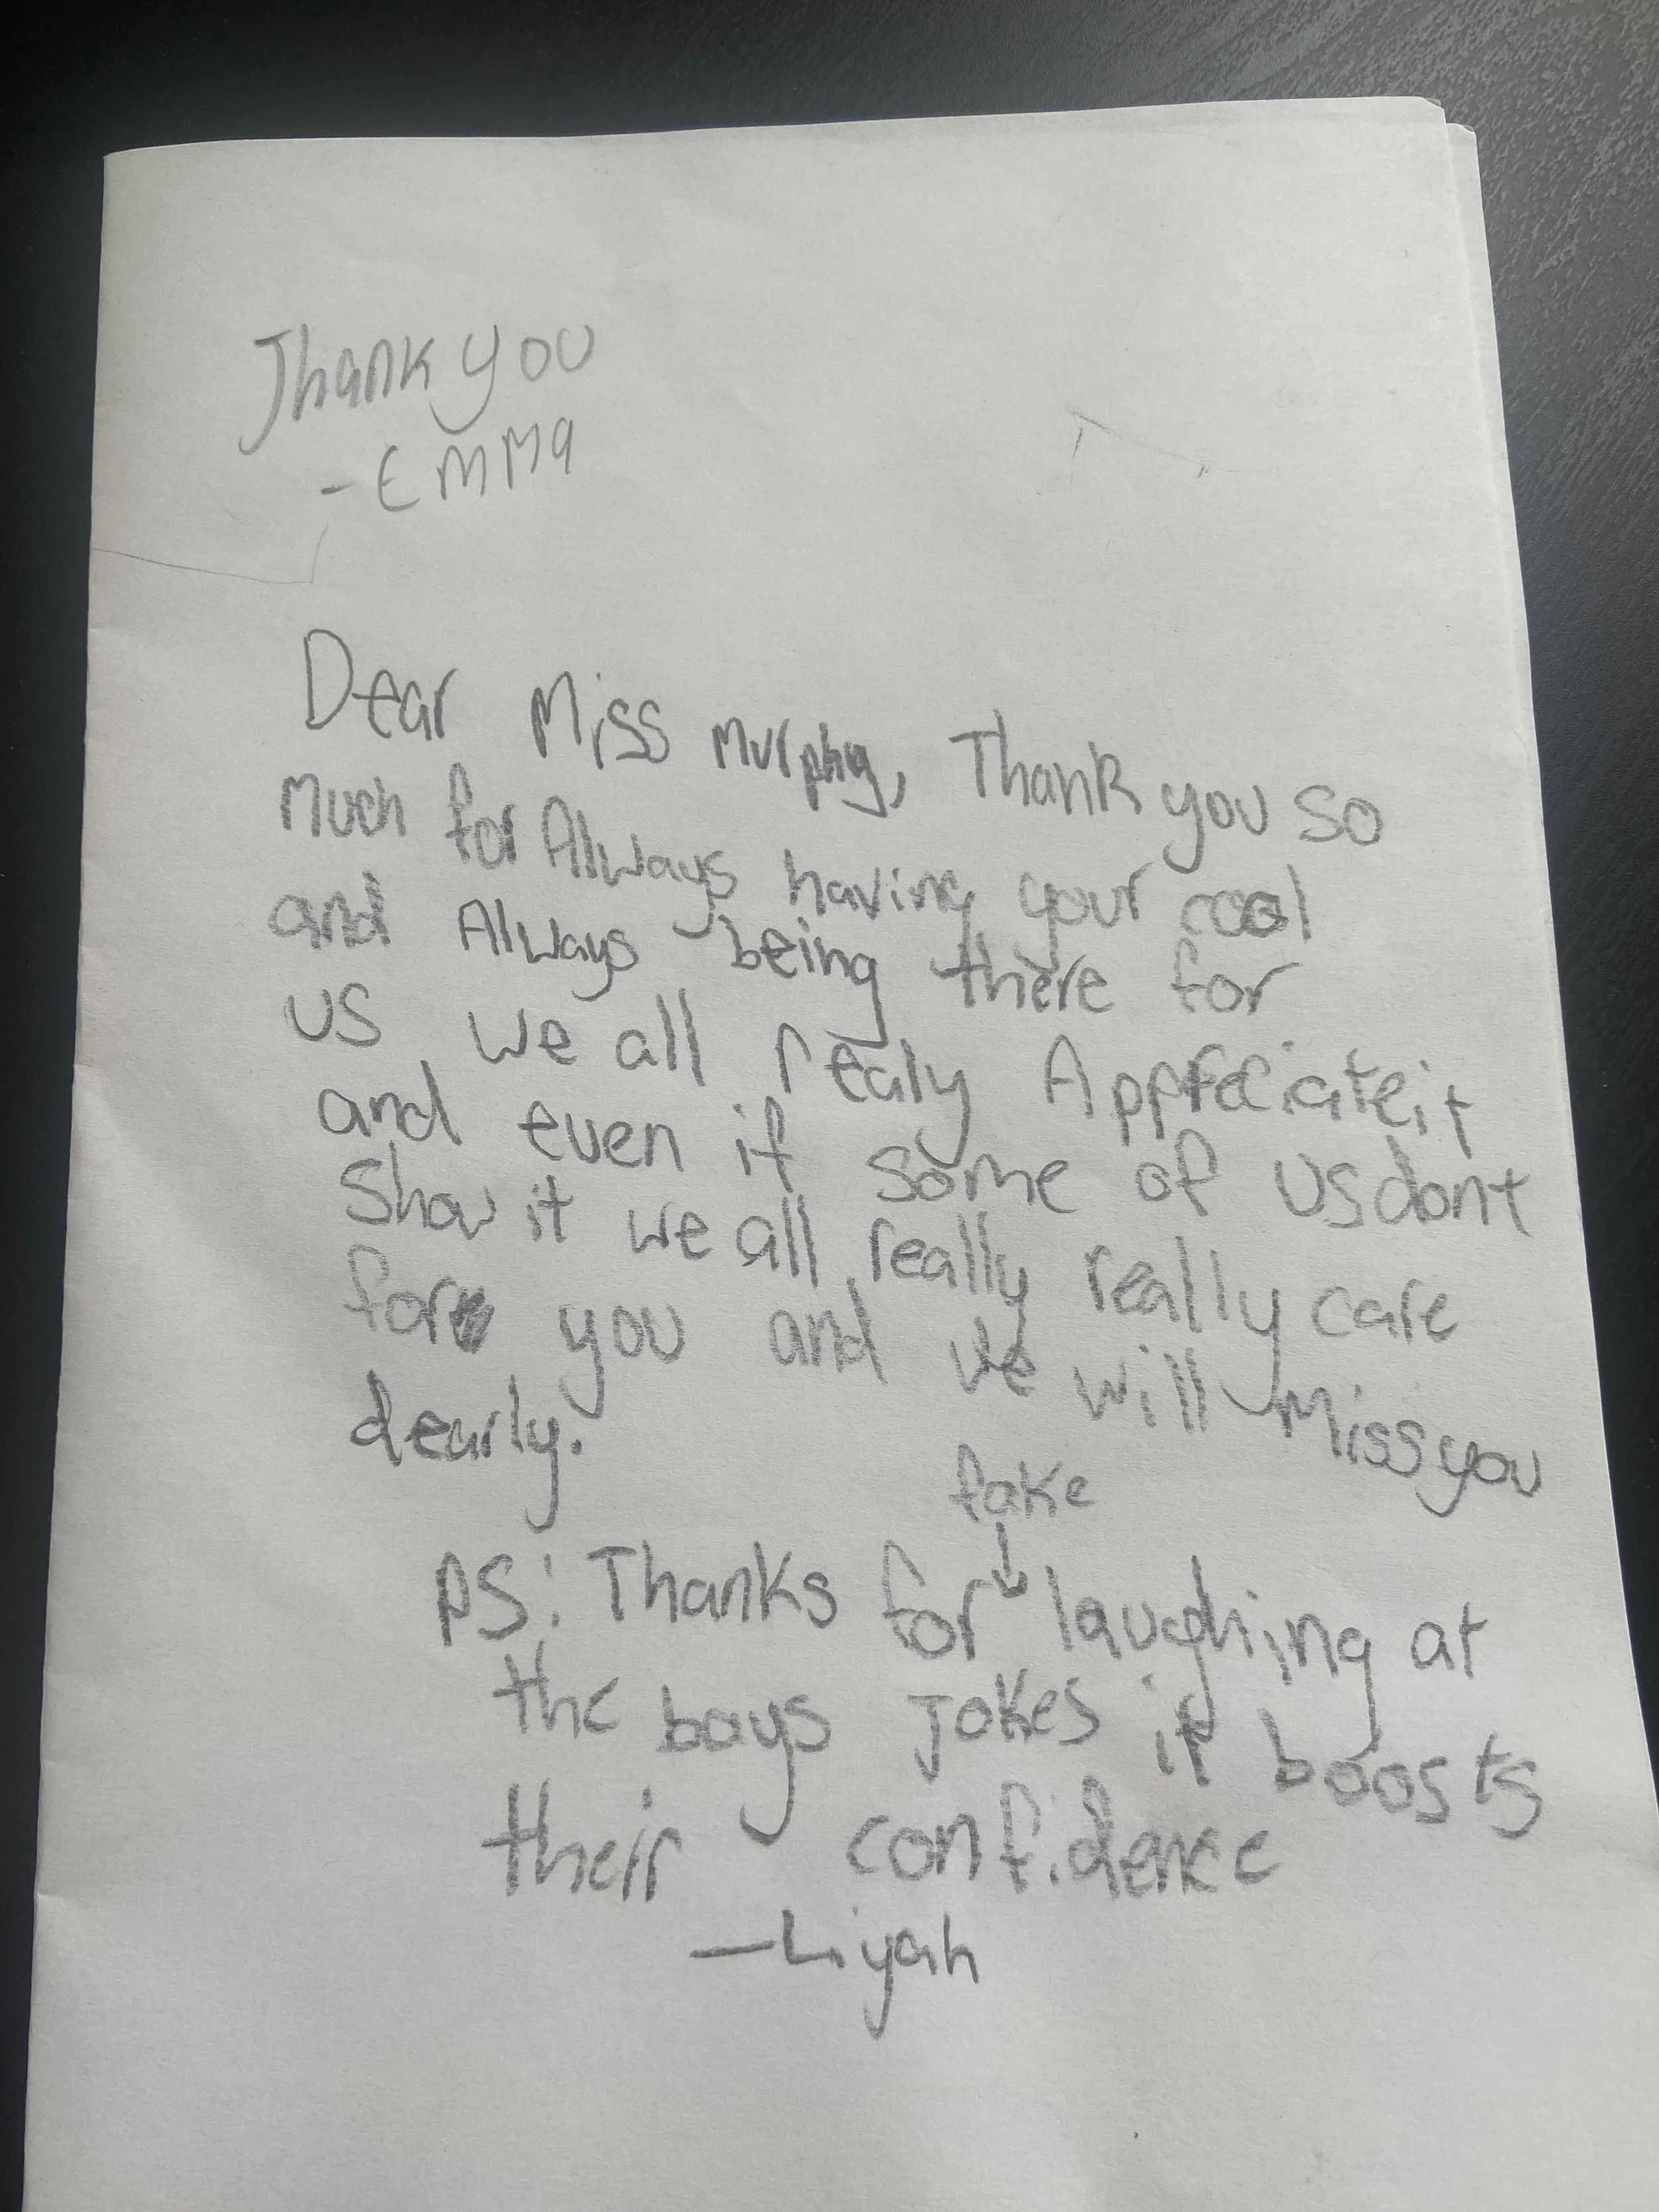 Thank you
- Emma
Dear Miss Murphy, Thank you so
Much for Always having your cool
and Always being there for
us we all realy Appreciate it
and even if some of us dont
Show it we all really really care
for you and we will Miss you
dearly.
fake
↓
PS: Thanks for laughing at
the boys Jokes it boosts
their confidence
—Liyah